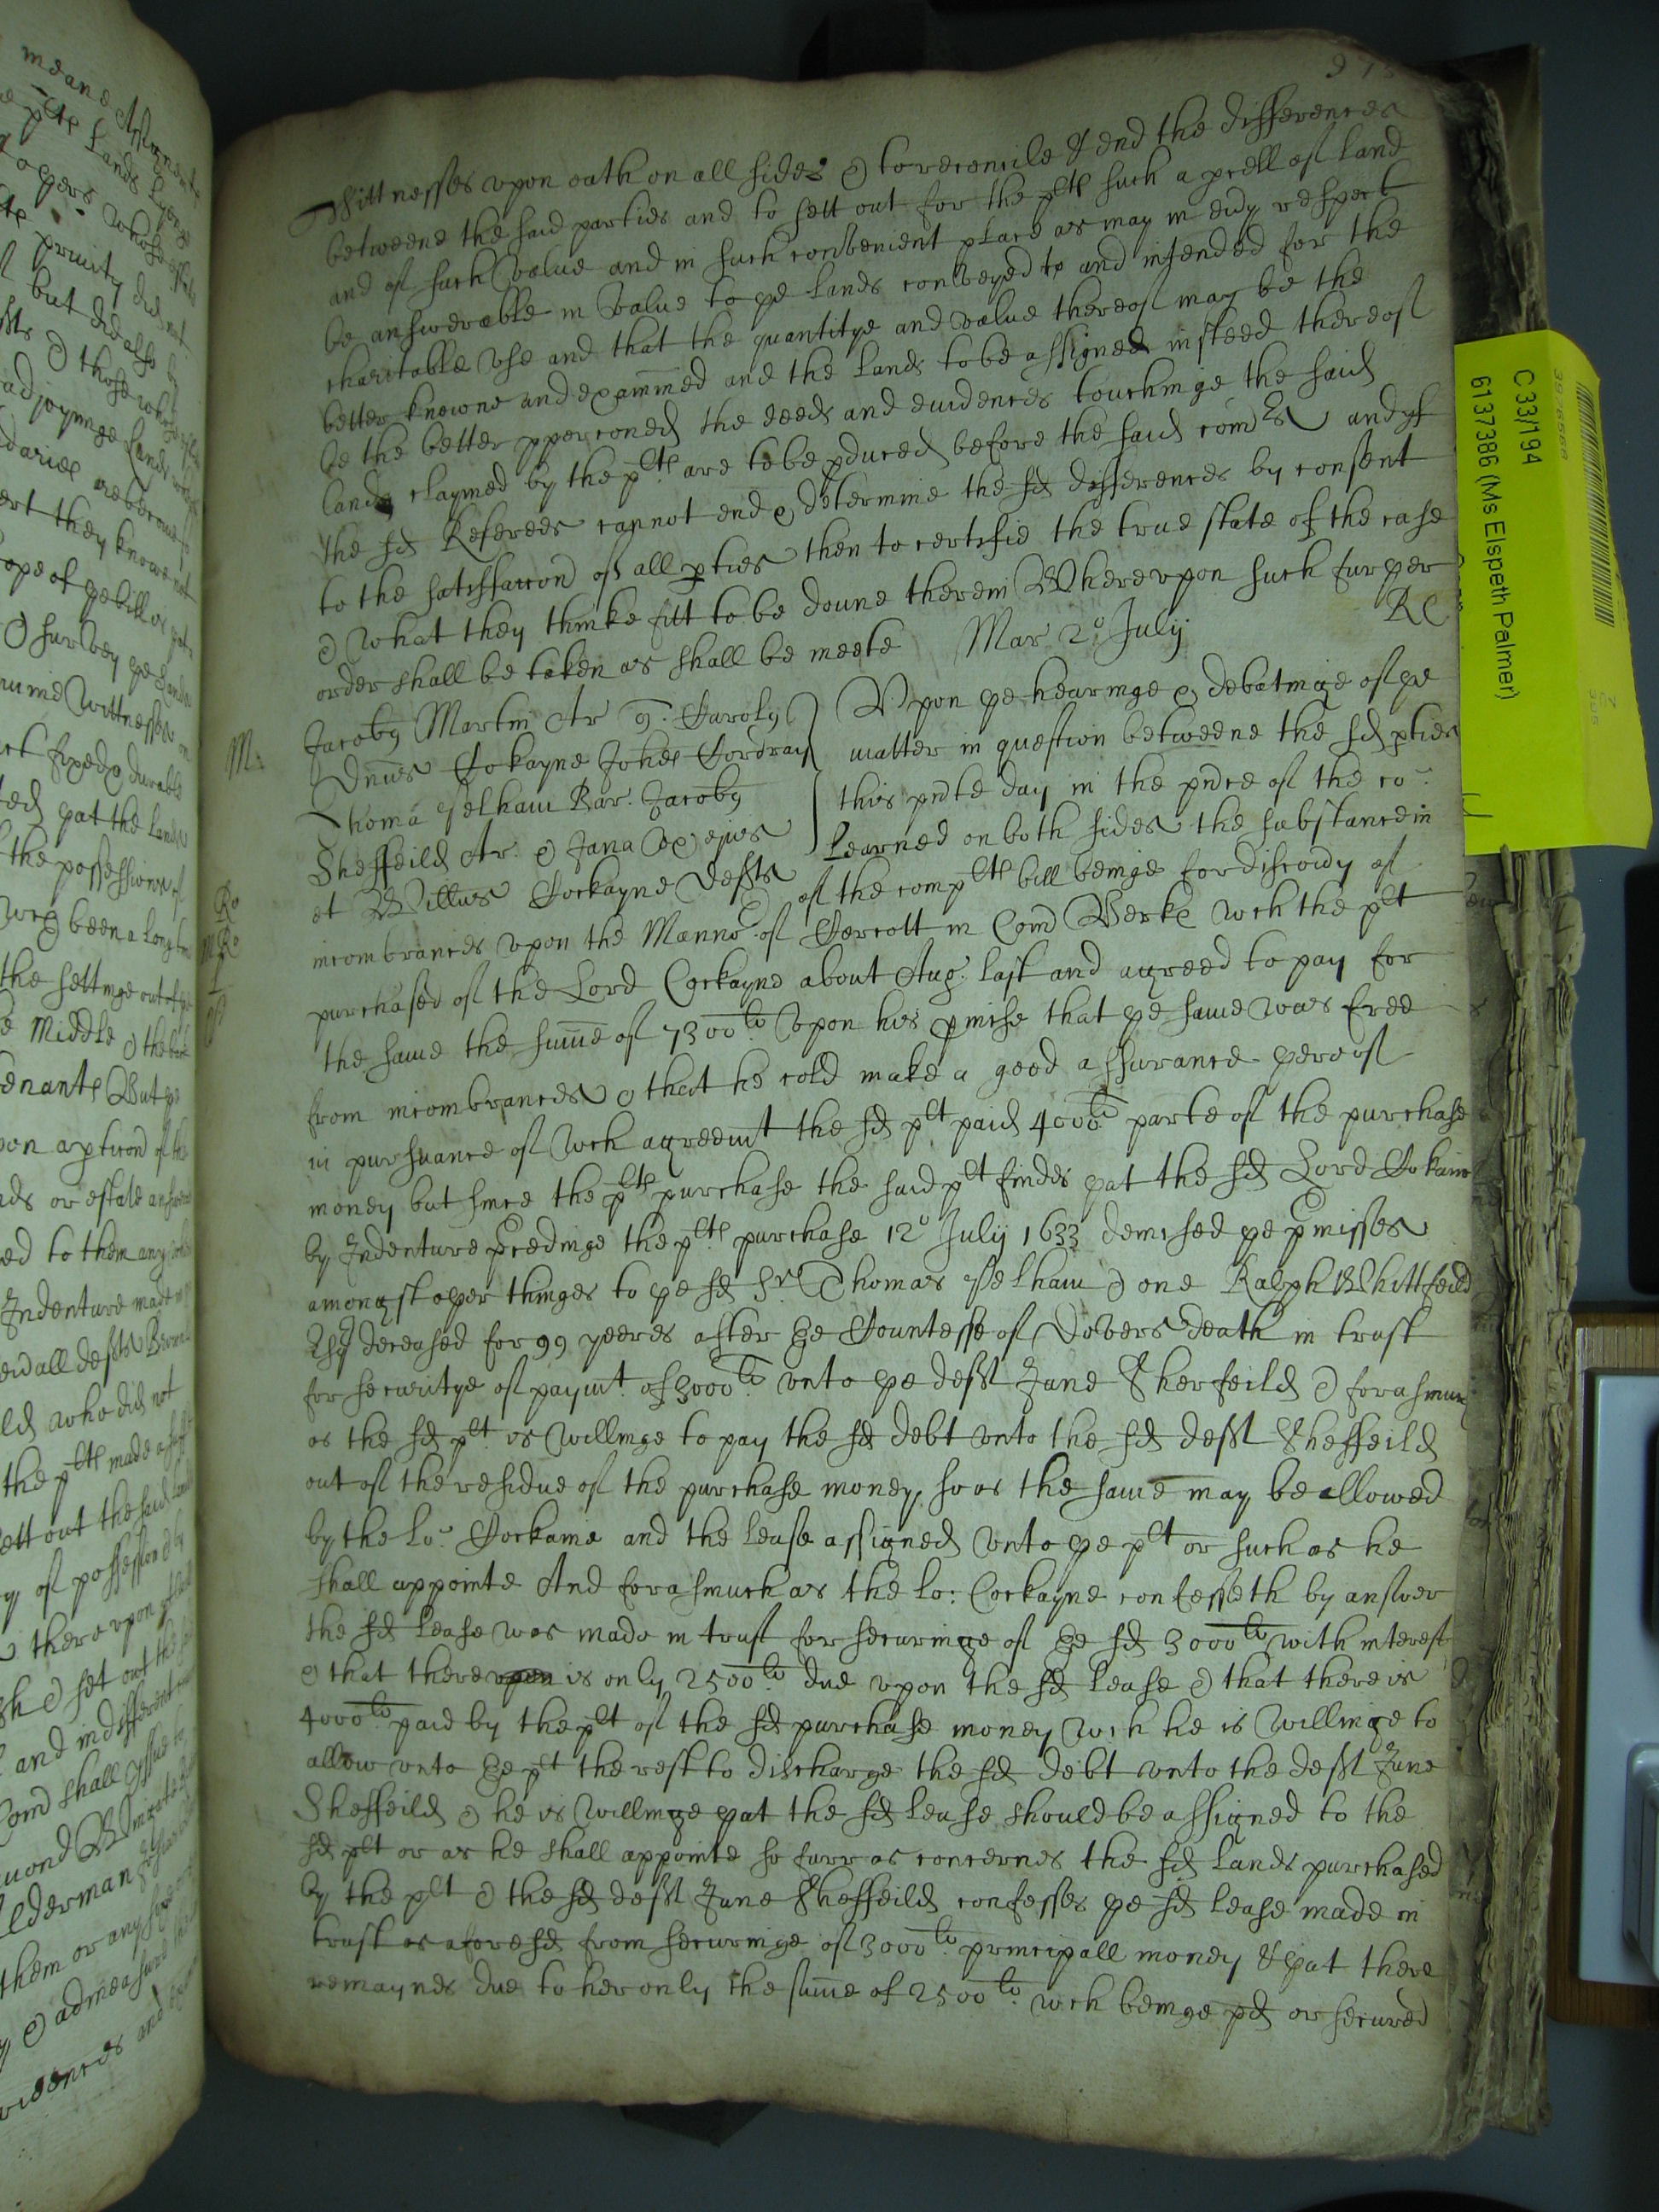 Wittnesses vpon oath on all sides & to reconcile & end the differences
betweene the said parties and to sett out for the plts such a pcell of land
and of such value and in such convenient place as may in eu'y respect
be answerable in value to ye lands conveyed to and intended for the
charitable vse and that the quantitye and value thereof may be the
better knowne and examined and the lands to be assigned insteed thereof
be the better pporconed the deeds and euidences touchinge the said
lands claymed by the plts are to be pduced before the said comrs and if
the sd Referees cannot end & determine the sd differences by consent
to the satisfaccon of all pties then to certifie the true state of the case
& what they thinke fitt to be doune therein Wherevpon such furyer
order shall be taken as shall be meete Mar 2o July RC
Jacobus Martin Ar qr. Carolus
Dnus Cokayne Johes Cordray
Thoma Pelham Bar. Jacobus
Sheffeild Ar. & Jana ux eius
et Willus Cockayne defts
Vpon ye hearinge & debatinge of ye
matter in question betweene the sd pties
this pnte day in the pnce of the co:
Learned on both sides the substance in
of the complts bill beinge for discouy of
incombrances vpon the Manno r of Carcott in Com Berks wch the plt
purchased of the Lord Cockayne about Aug. last and agreed to pay for
the same the sume of 7300li vpon his pmise that ye same was free
from incombrances & that he cold make a good assurance yereof
in pursuance of wch agreemt the sd plt paid 4000li parte of the purchase
money but since the plts purchase the said plt findes yat the sd Lord Cokaine
by Indenture Preedinge the plts purchase 12o July 1633 demised ye Pmisses
amongst oyer thinges to ye sd Sr Thomas Pelham & one Ralph Whittfeild
Esq deceased for 99 yeeres after ye Countesse of Dovers death in trust
for securitye of paymt of 3000li vnto ye deft Jane Sherfeild & forasmuch
as the sd plt is willinge to pay the sd debt vnto the sd deft Sheffeild
out of the residue of the purchase money, so as the same may be allowed
by the Lo: Cockaine and the lease assigned vnto ye plt or such as he
shall appointe And forasmuch as the Lo: Cockayne confesseth by answer
the sd lease was made in trust for securinge of ye sd 3000li with interest
& that there is only 2500li due vpon the sd lease & that there is
4000li paid by the plt of the sd purchase money wch he is willinge to
allow vnto ye plt the rest to discharge the sd debt vnto the deft Jane
Sheffeild & he is willinge yat the sd lease should be assigned to the
sd plt or as he shall appointe so farr as concernes the sd lands purchased
by the plt & the sd deft Jane Sheffeild confesses ye sd lease made in
trust as aforesd from securinge of 3000li principall money & yat there
remaynes due to her only the sume of 2500li wch beinge pd or secured
C 33/194
6137386 (Ms Elspeth Palmer)